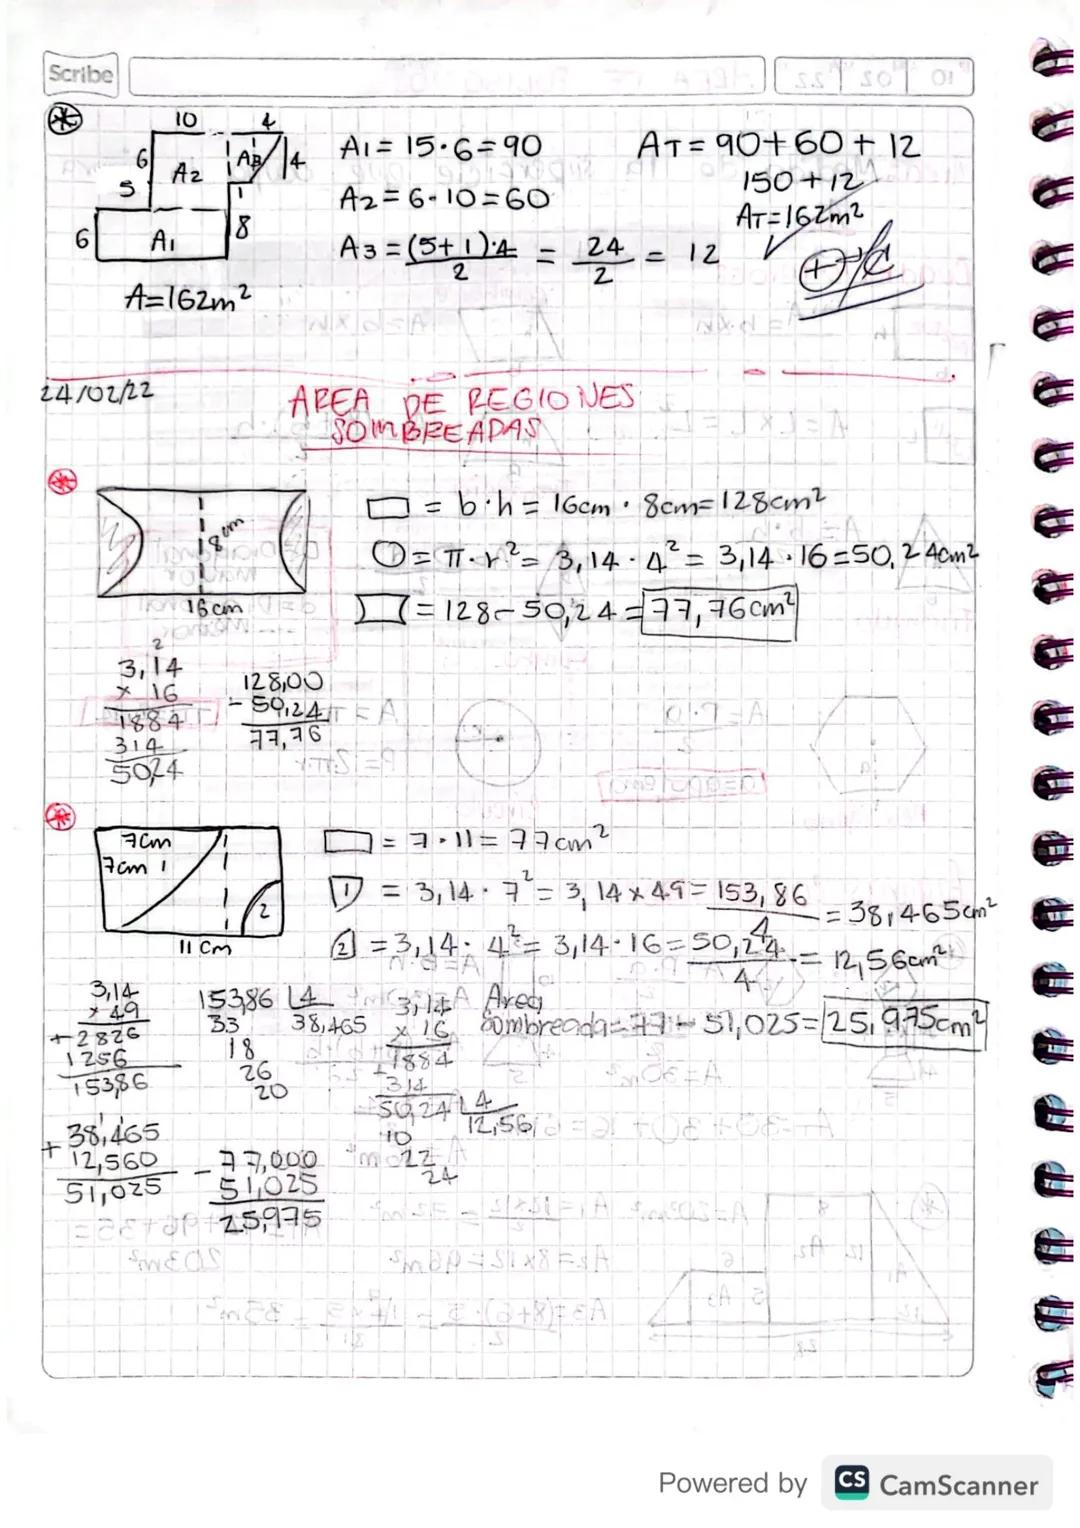 Scribe
10 4
6 A2 A3 4
5 1
6 A1 8
A=162m²
A1=15·6=90
A2=6·10=60
A3=(5+1)·4/2 = 24/2 = 12
AT=90+60+12
150+12
AT=162m²
24/02/22
AREA DE REGIONES
SOMBREADAS
8cm
16cm
= b·h= 16cm · 8cm=128cm²
= π·r²= 3,14·4²= 3,14·16=50,24cm²
= 128-50,24=77,76cm²
2
3,14
x 16
1884
314
50,24
128,00
- 50,24
77,76
7cm
7cm
2
11 cm
= 7·11= 77cm²
1 = 3,14·7²= 3,14x49= 153,86/4 = 38,465cm²
2 =3,14·4²= 3,14·16=50,24/4 = 12,56cm²
Area
Sombreada=77-51,025=25,975cm²
3,14
x 49
+2826
1256
153,86
153,86 4
33 38,465
18
26
20
3,14
x 16
+1884
314
50,24 4
10 12,56
22
24
38,465
+ 12,560
51,025
- 77,000
51,025
25,975
Powered by CS CamScanner